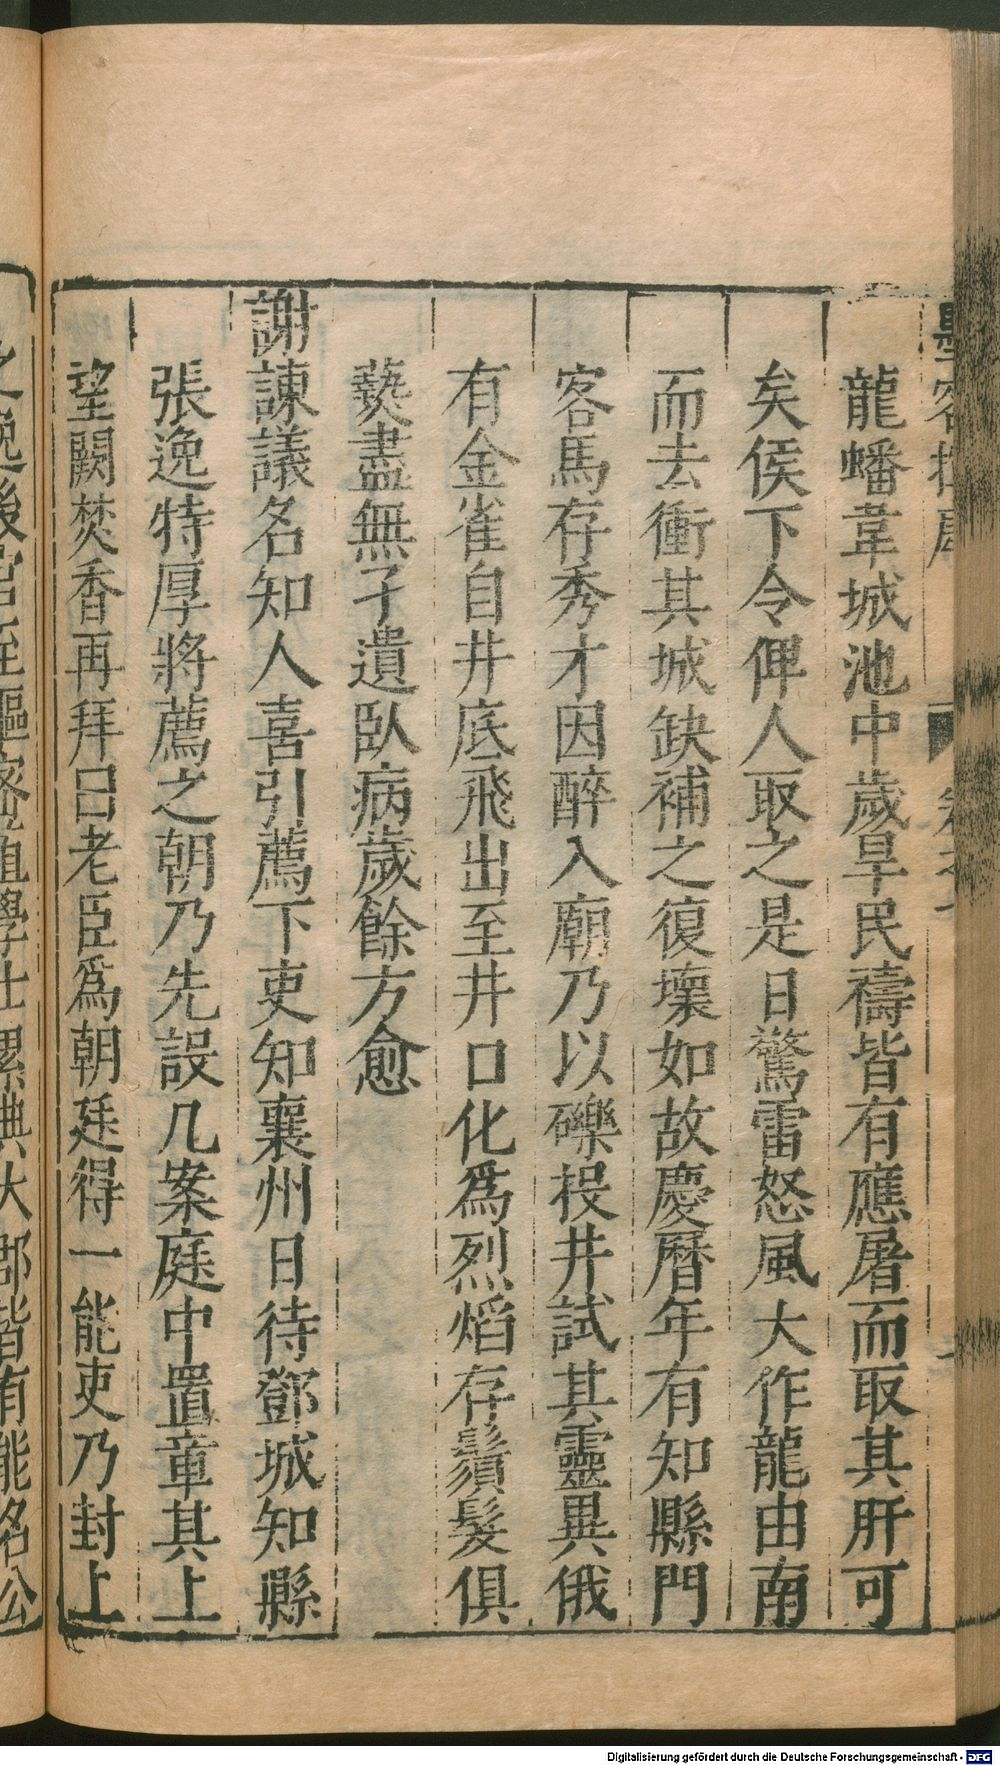 龍蟠韋城池中歲旱民禱皆有應屠而取其肝可
矣俟下令俾人取之是日驚雷怒風大作龍由南
而去衝其城缺補之復壞如故慶曆年有知縣門
客馬存秀才因醉入廟乃以礫投井試其靈異俄
有金雀自井底飛出至井口化爲烈焰存鬚髮俱
爇盡無孑遺臥病歲餘方愈
謝諫議名知人喜引薦下吏知襄州日待鄧城知縣
張逸特厚將薦之朝乃先設几案庭中置章其上
望闕焚香再拜曰老臣爲朝廷得一能吏乃封上
之逸後官至樞密直學士累典大郡皆有能名公
Digitalisierung gefördert durch die Deutsche Forschungsgemeinschaft - DFG